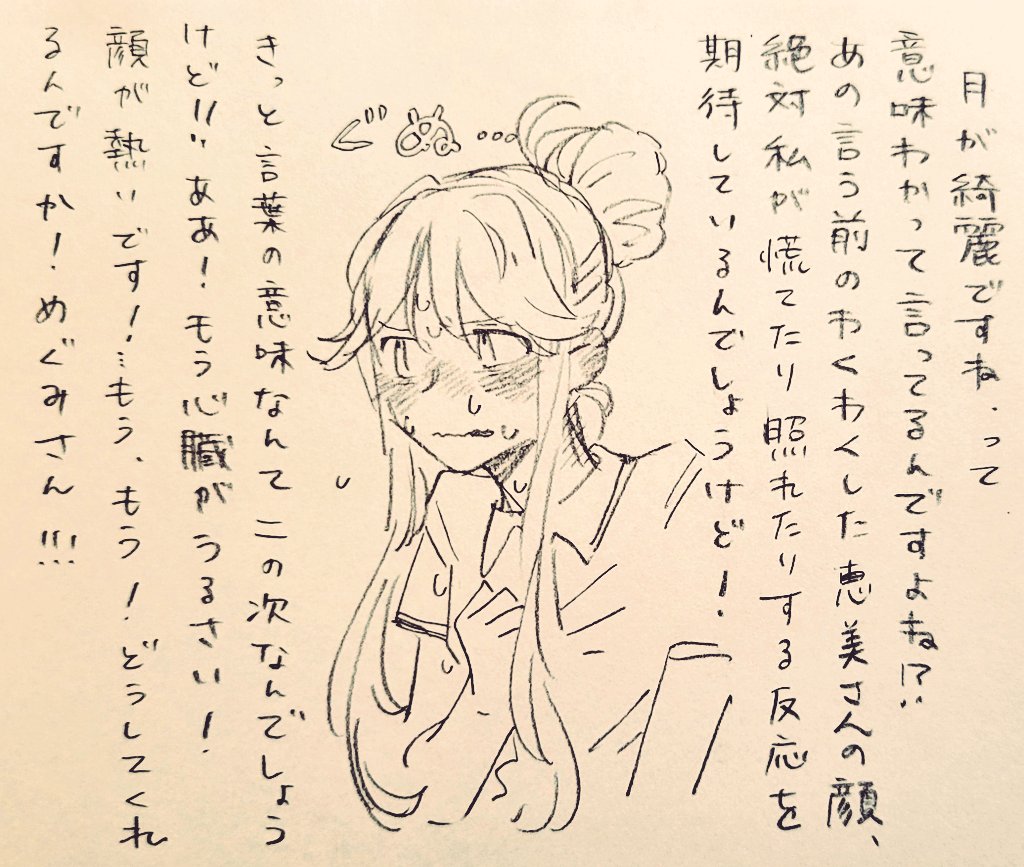 月が綺麗ですね、って
意味わかって言ってるんですよね!?
あの言う前のわくわくした恵美さんの顔、
絶対私が慌てたり照れたりする反応を
期待しているんでしょうけど!
ぐぬ…
きっと言葉の意味なんて二の次なんでしょう
けど!!ああ!もう心臓がうるさい!
顔が熱いです!…もう、もう!どうしてくれ
るんですか!めぐみさん!!!